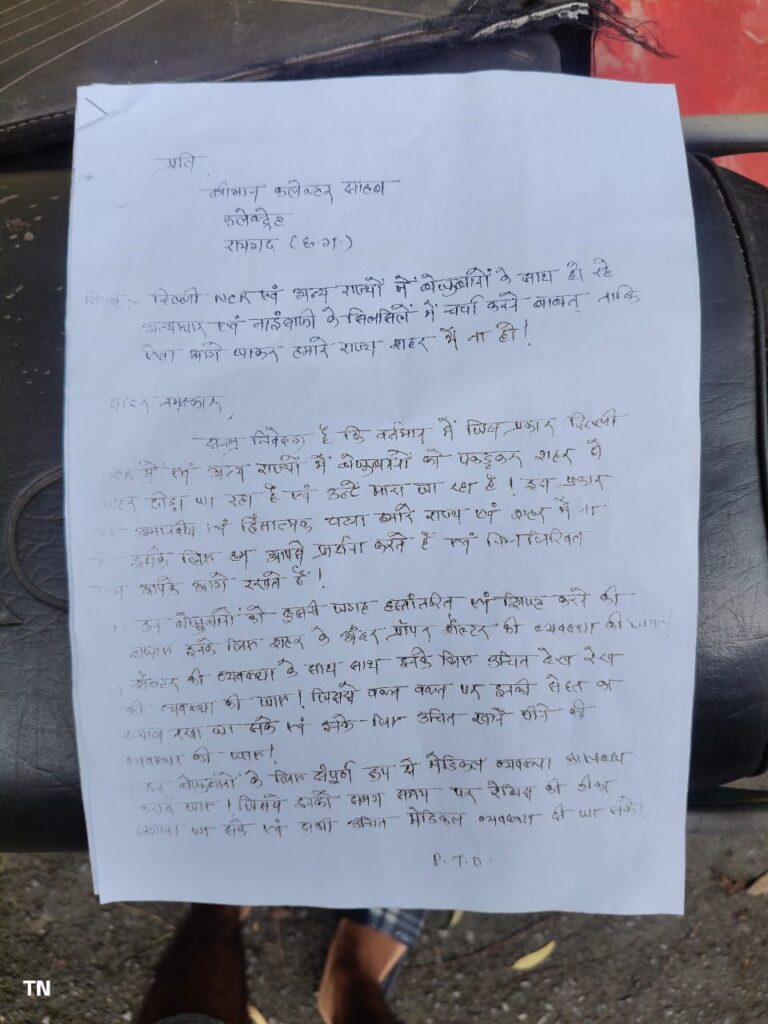 प्रति,
श्रीमान कलेक्टर साहब
कलेक्ट्रेट
रायगढ़ (छ.ग.)
विषय :- दिल्ली NCR एवं अन्य राज्यों में बेजुबानों के साथ हो रहे
अत्याचार एवं नाइंसाफी के सिलसिलें में चर्चा करने बाबत् ताकि
ऐसा आगे जाकर हमारे राज्य शहर में ना हो!
सादर नमस्कार,
नम्र निवेदन है कि वर्तमान में जिस प्रकार दिल्ली
NCR में एवं अन्य राज्यों में बेजुबानों को पकड़कर शहर से
बाहर छोड़ा जा रहा है एवं उन्हें मारा जा रहा है! इस प्रकार
अमानवीय एवं हिंसात्मक घटना हमारे राज्य एवं शहर में ना
इसके लिए हम आपसे प्रार्थना करते है एवं निम्नलिखित
आपके आगे रखते हैं!
इन बेजुबानों को दुसरी जगह हस्तांतरित एवं शिफ्ट करने की
बजाए इनके लिए शहर के अंदर प्रॉपर शेल्टर की व्यवस्था की जाए
शेल्टर की व्यवस्था के साथ साथ इनके लिए उचित देख रेख
की व्यवस्था की जाए! जिससे वक्त वक्त पर इनकी सेहत का
ख्याल रखा जा सके एवं इनके लिए उचित खाने पीने की
व्यवस्था की जाए!
इन बेजुबानों के लिए संपूर्ण रूप से मेडिकल व्यवस्था उपलब्ध
कराई जाए! जिससे इनको समय समय पर रेबिस की टीका
लगाया जा सके एवं सभी उचित मेडिकल व्यवस्था दी जा सके!
P. T. O.
TN